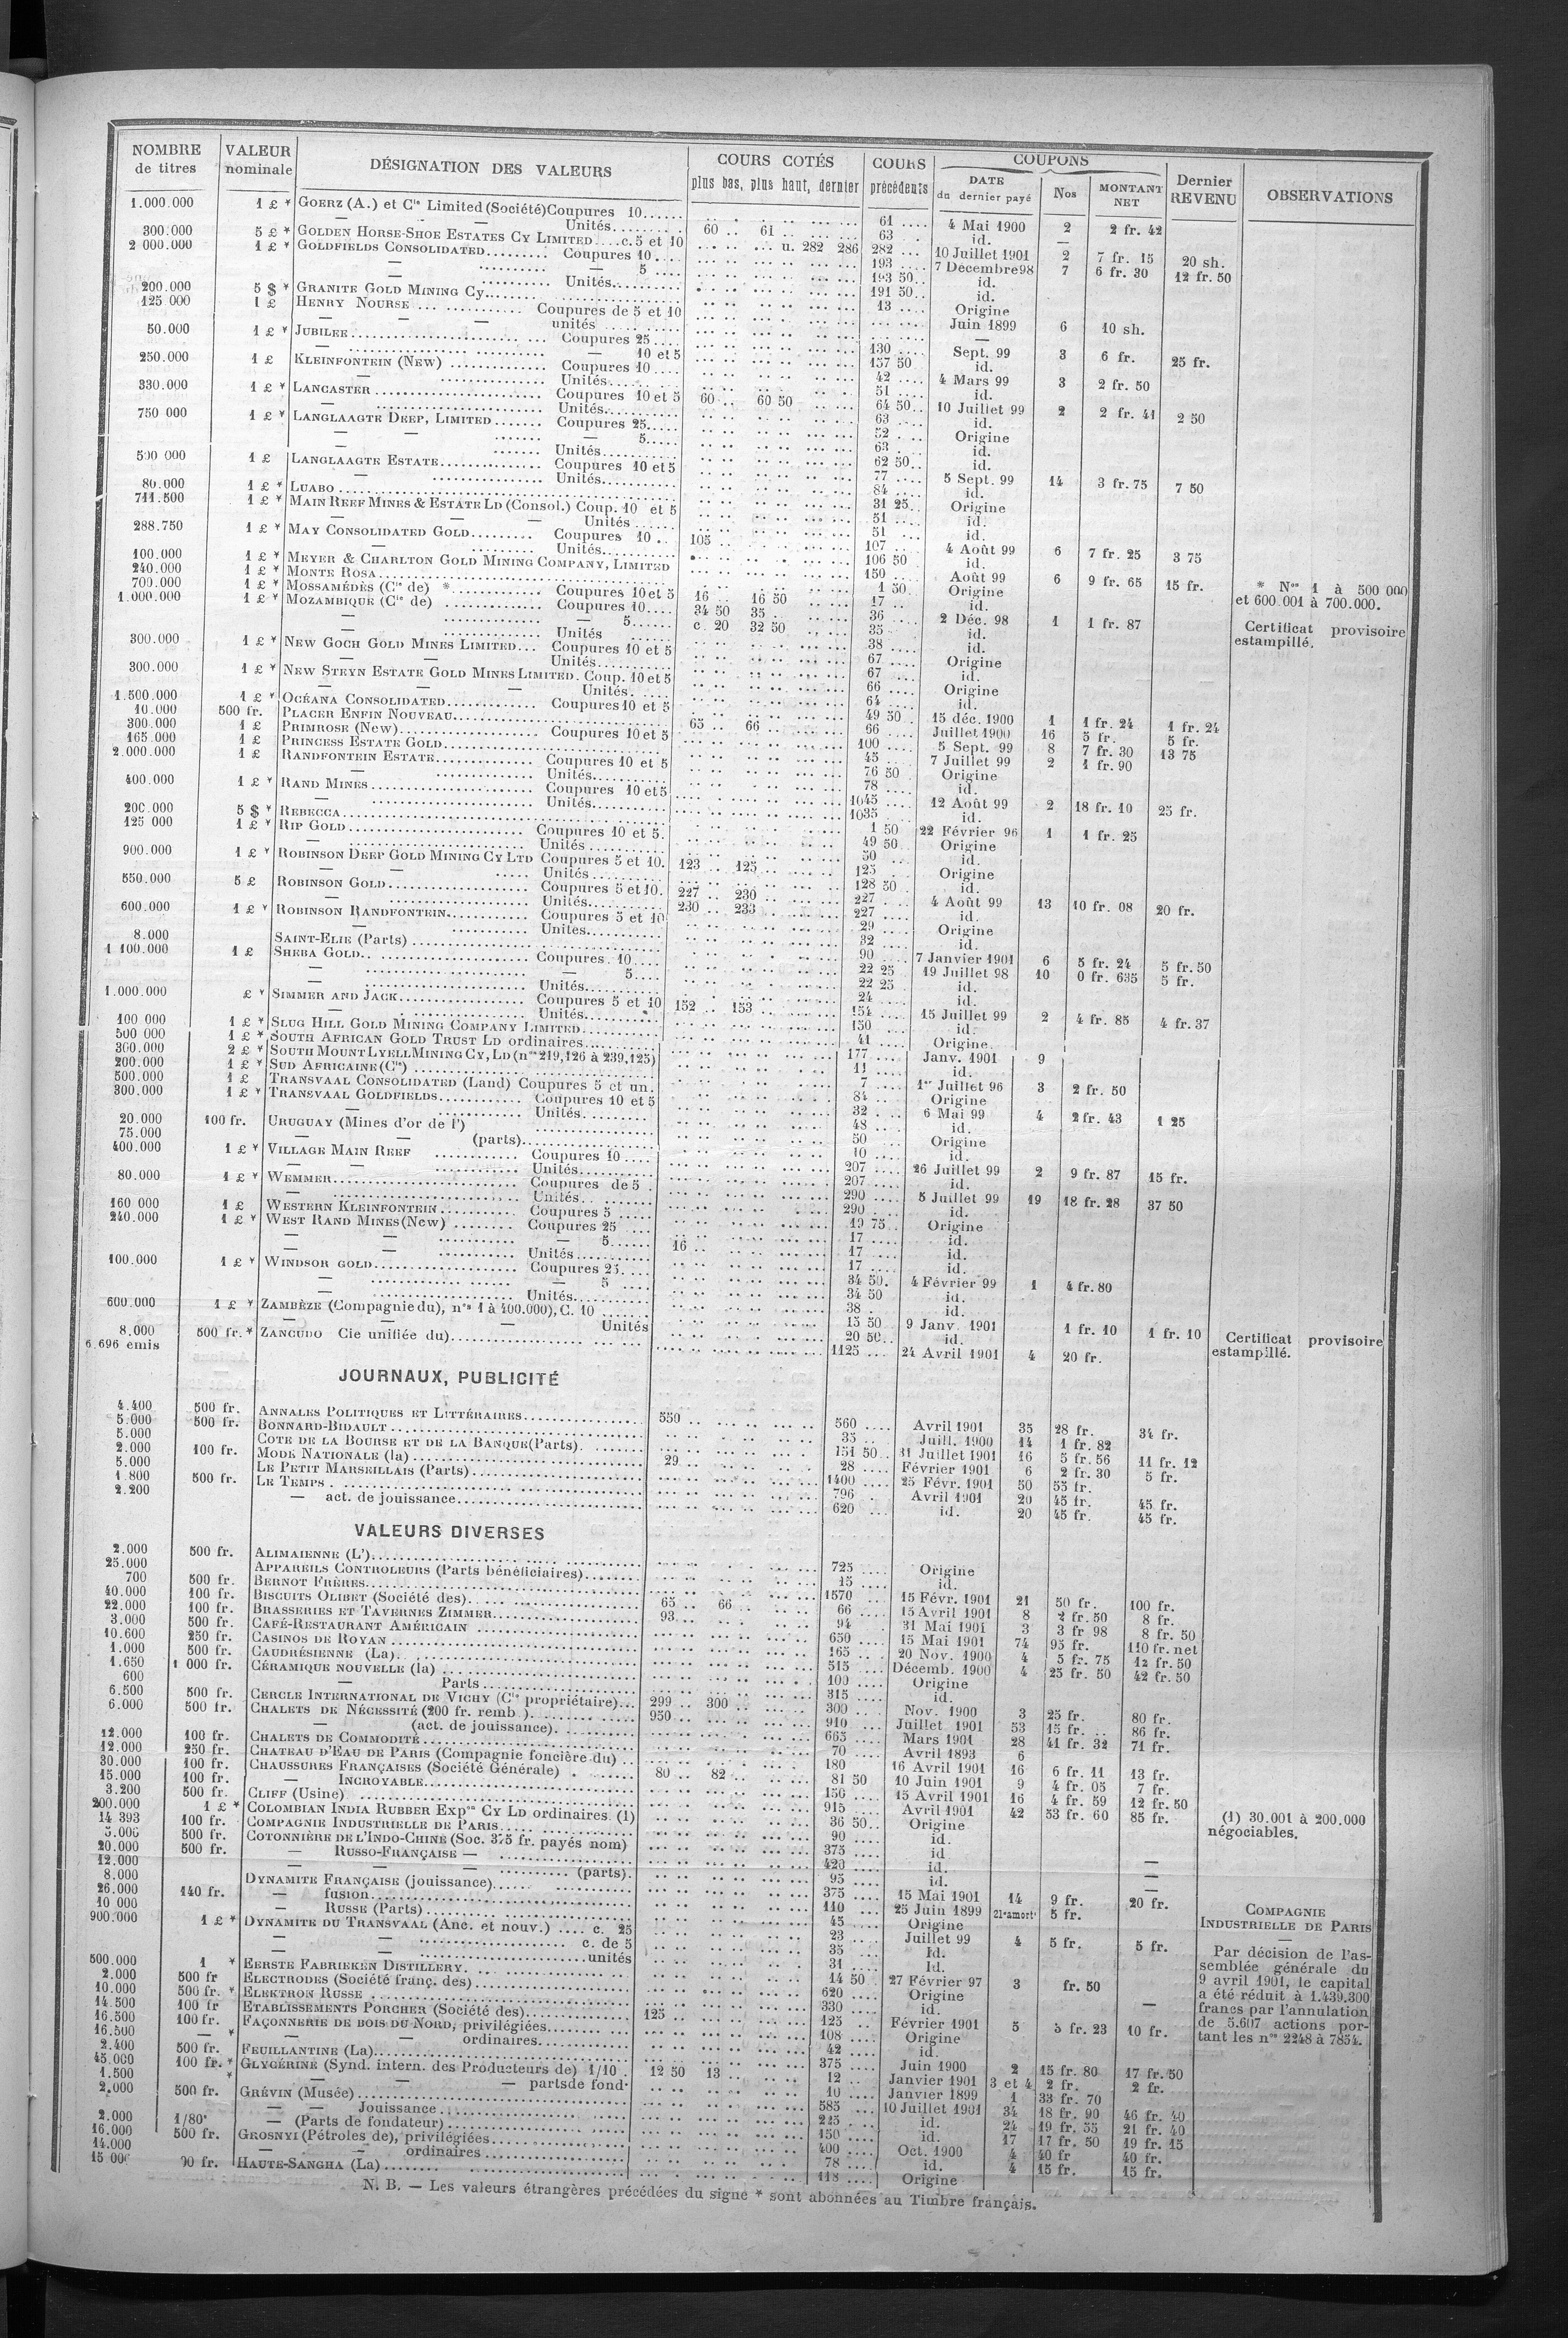 NOMBRE de titres | VALEUR nominale | DÉSIGNATION DES VALEURS | COURS COTÉS plus bas, plus haut, dernier | COURS précédents | COUPONS DATE du dernier payé | Nos | MONTANT NET | Dernier REVENU | OBSERVATIONS
1.000.000 1 £ * GOERZ (A.) et Cie Limited (Société) Coupures 10 61 4 Mai 1900 2 2 fr. 42
— — Unités 60 61 63 id. —
300.000 5 £ * GOLDEN HORSE-SHOE ESTATES CY LIMITED c. 5 et 10 u. 282 286 282 10 Juillet 1901 2 7 fr. 15 20 sh.
2 000.000 1 £ * GOLDFIELDS CONSOLIDATED Coupures 10 193 7 Décembre 98 7 6 fr. 30 12 fr. 50
— — 5 193 50 id.
— Unités 191 50 id.
200.000 5 $ * GRANITE GOLD MINING Cy 13 Origine
125 000 1 £ HENRY NOURSE Coupures de 5 et 10 Juin 1899 6 10 sh.
— — — unités —
50.000 1 £ * JUBILEE Coupures 25 130 Sept. 99 3 6 fr. 25 fr.
— — 10 et 5 157 50 id.
250.000 1 £ KLEINFONTEIN (New) Coupures 10 42 4 Mars 99 3 2 fr. 50
— Unités 51 id.
330.000 1 £ * LANCASTER Coupures 10 et 5 60 60 50 64 50 10 Juillet 99 2 2 fr. 41 2 50
— Unités 63 id.
750 000 1 £ * LANGLAAGTE DEEP, LIMITED Coupures 25 52 Origine
— — — 5 63 id.
— Unités 62 50 id.
500 000 1 £ LANGLAAGTE ESTATE Coupures 10 et 5 77 5 Sept. 99 14 3 fr. 75 7 50
— Unités 84 id.
80.000 1 £ * LUABO 31 25 Origine
711.500 1 £ * MAIN REEF MINES & ESTATE LD (Consol.) Coup. 10 et 5 51 id.
— — — Unités 51 id.
288.750 1 £ * MAY CONSOLIDATED GOLD Coupures 10 105 107 4 Août 99 6 7 fr. 25 3 75
— Unités 106 50 id.
100.000 1 £ * MEYER & CHARLTON GOLD MINING COMPANY, LIMITED 150 Août 99 6 9 fr. 65 15 fr.
240.000 1 £ * MONTE ROSA 1 50 Origine
700.000 1 £ * MOSSAMÉDÈS (Cie de) * Coupures 10 et 5 16 16 50 17 id. * Nos 1 à 500 000 et 600 001 à 700.000.
1.000.000 1 £ * MOZAMBIQUE (Cie de) Coupures 10 34 50 35 36 2 Déc. 98 1 1 fr. 87 Certificat provisoire estampillé.
— — 5 c. 20 32 50 35 id.
— Unités 38 id.
300.000 1 £ * NEW GOCH GOLD MINES LIMITED Coupures 10 et 5 67 Origine
— — Unités 67 id.
300.000 1 £ * NEW STEYN ESTATE GOLD MINES LIMITED. Coup. 10 et 5 66 Origine
— — — Unités 64 id.
1.500.000 1 £ * OCÉANA CONSOLIDATED Coupures 10 et 5 49 50 15 déc. 1900 1 1 fr. 24 1 fr. 24
10.000 500 fr. PLACER ENFIN NOUVEAU 66 Juillet 1900 16 5 fr. 5 fr.
300.000 1 £ PRIMROSE (New) Coupures 10 et 5 65 66 100 5 Sept. 99 8 7 fr. 30 13 75
165.000 1 £ PRINCESS ESTATE GOLD 45 7 Juillet 99 2 1 fr. 90
2.000.000 1 £ RANDFONTEIN ESTATE Coupures 10 et 5 76 50 Origine
— Unités 78 id.
400.000 1 £ * RAND MINES Coupures 10 et 5 1045 12 Août 99 2 18 fr. 10 25 fr.
— Unités 1035 id.
200.000 5 $ * REBECCA 1 50 22 Février 96 1 1 fr. 25
125 000 1 £ * RIP GOLD Coupures 10 et 5. 49 50 Origine
— Unités 50 id.
900.000 1 £ * ROBINSON DEEP GOLD MINING CY LTD Coupures 5 et 10. 123 125 125 Origine
— — Unités 128 50 id.
550.000 5 £ ROBINSON GOLD Coupures 5 et 10. 227 230 227 4 Août 99 13 10 fr. 08 20 fr.
— Unités 230 233 227 id.
600.000 1 £ * ROBINSON RANDFONTEIN Coupures 5 et 10 29 Origine
— Unités 32 id.
8.000 SAINT-ELIE (Parts) 90 7 Janvier 1901 6 5 fr. 24 5 fr. 50
1 100.000 1 £ SHEBA GOLD Coupures 10 22 25 19 Juillet 98 10 0 fr. 635 5 fr.
— — 5 22 25 id.
— Unités 24 id.
1.000.000 £ * SIMMER AND JACK Coupures 5 et 10 152 153 154 15 Juillet 99 2 4 fr. 85 4 fr. 37
— Unités 150 id.
100 000 1 £ * SLUG HILL GOLD MINING COMPANY LIMITED 41 Origine
500 000 1 £ * SOUTH AFRICAN GOLD TRUST LD ordinaires 177 Janv. 1901 9
300.000 2 £ * SOUTH MOUNT LYELL MINING CY, LD (nos 219,126 à 239,125) 11 id.
200.000 1 £ * SUD AFRICAINE (Cie) 7 1er Juillet 96 3 2 fr. 50
500.000 1 £ TRANSVAAL CONSOLIDATED (Land) Coupures 5 et un. 84 Origine
300.000 1 £ * TRANSVAAL GOLDFIELDS Coupures 10 et 5 32 6 Mai 99 4 2 fr. 43 1 25
— Unités 48 id.
20.000 100 fr. URUGUAY (Mines d'or de l') 50 Origine
75.000 — — (parts) 10 id.
400.000 1 £ * VILLAGE MAIN REEF Coupures 10 207 26 Juillet 99 2 9 fr. 87 15 fr.
— — Unités 207 id.
80.000 1 £ * WEMMER Coupures de 5 290 5 Juillet 99 19 18 fr. 28 37 50
— Unités 290 id.
160 000 1 £ WESTERN KLEINFONTEIN Coupures 5 19 75 Origine
240.000 1 £ * WEST RAND MINES (New) Coupures 25 17 id.
— — — 5 16 17 id.
— — Unités 17 id.
100.000 1 £ * WINDSOR GOLD Coupures 25 34 50 4 Février 99 1 4 fr. 80
— — 5 34 50 id.
— Unités 38 id.
600.000 1 £ * ZAMBÈZE (Compagnie du), nos 1 à 400.000), C. 10 15 50 9 Janv. 1901 1 fr. 10 1 fr. 10 Certificat provisoire estampillé.
— — — Unités 20 50 id.
8.000 500 fr. * ZANCUDO Cie unifiée du) 1125 24 Avril 1901 4 20 fr.
6.696 émis
JOURNAUX, PUBLICITÉ
4.400 500 fr. ANNALES POLITIQUES ET LITTÉRAIRES 550 560 Avril 1901 35 28 fr. 34 fr.
5.000 500 fr. BONNARD-BIDAULT 35 Juill. 1900 14 1 fr. 82
5.000 COTE DE LA BOURSE ET DE LA BANQUE (Parts) 151 50 31 Juillet 1901 16 5 fr. 56 11 fr. 12
2.000 100 fr. MODE NATIONALE (la) 29 28 Février 1901 6 2 fr. 30 5 fr.
5.000 LE PETIT MARSEILLAIS (Parts) 1400 25 Févr. 1901 50 55 fr.
1.800 500 fr. LE TEMPS 796 Avril 1901 20 45 fr. 45 fr.
2.200 — act. de jouissance 620 id. 20 45 fr. 45 fr.
VALEURS DIVERSES
2.000 500 fr. ALIMAIENNE (L') 725 Origine
25.000 APPAREILS CONTROLEURS (Parts bénéficiaires) 15 id.
700 500 fr. BERNOT FRÈRES 1570 15 Févr. 1901 21 50 fr. 100 fr.
40.000 100 fr. BISCUITS OLIBET (Société des) 65 66 66 15 Avril 1901 8 2 fr. 50 8 fr.
22.000 100 fr. BRASSERIES ET TAVERNES ZIMMER 93 94 31 Mai 1901 3 3 fr 98 8 fr. 50
3.000 500 fr. CAFÉ-RESTAURANT AMÉRICAIN 650 15 Mai 1901 74 95 fr. 110 fr. net
10.600 250 fr. CASINOS DE ROYAN 165 20 Nov. 1900 4 5 fr. 75 12 fr. 50
1.000 500 fr. CAUDRÉSIENNE (La) 515 Décemb. 1900 4 25 fr. 50 42 fr. 50
1.650 1 000 fr. CÉRAMIQUE NOUVELLE (la) 100 Origine
600 — Parts 315 id.
6.500 500 fr. CERCLE INTERNATIONAL DE VICHY (Cie propriétaire) 299 300 300 Nov. 1900 3 25 fr. 80 fr.
6.000 500 fr. CHALETS DE NÉCESSITÉ (200 fr. remb.) 950 910 Juillet 1901 53 15 fr. 86 fr.
— (act. de jouissance) 665 Mars 1901 28 41 fr. 32 71 fr.
12.000 100 fr. CHALETS DE COMMODITÉ 70 Avril 1893 6
12.000 250 fr. CHATEAU D'EAU DE PARIS (Compagnie foncière du) 180 16 Avril 1901 16 6 fr. 11 13 fr.
30.000 100 fr. CHAUSSURES FRANÇAISES (Société Générale) 80 82 81 50 10 Juin 1901 9 4 fr. 05 7 fr.
15.000 100 fr. — INCROYABLE 150 15 Avril 1901 16 4 fr. 59 12 fr. 50
3.200 500 fr. CLIFF (Usine) 915 Avril 1901 42 53 fr. 60 85 fr.
200.000 1 £ * COLOMBIAN INDIA RUBBER Expon CY LD ordinaires (1) 36 50 Origine (1) 30.001 à 200.000 négociables.
14 393 100 fr. COMPAGNIE INDUSTRIELLE DE PARIS 90 id.
500 fr. COTONNIÈRE DE L'INDO-CHINE (Soc. 375 fr. payés nom) 375 id.
20.000 500 fr. — RUSSO-FRANÇAISE — 420 id. —
12.000 — — — (parts) 95 id. —
8.000 DYNAMITE FRANÇAISE (jouissance) 375 15 Mai 1901 14 9 fr. 20 fr.
26.000 140 fr. — fusion 110 25 Juin 1899 21e amort 5 fr.
10 000 — RUSSE (Parts) 45 Origine
900.000 1 £ * DYNAMITE DU TRANSVAAL (Anc. et nouv.) c. 25 23 Juillet 99 4 5 fr. 5 fr.
— — c. de 5 35 Id.
— — unités 31 Id.
500.000 1 * EERSTE FABRIEKEN DISTILLERY 14 50 27 Février 97 3 fr. 50
2.000 500 fr ELECTRODES (Société franç. des) 620 Origine
10.000 500 fr. * ELEKTRON RUSSE 330 id. —
14.500 100 fr ETABLISSEMENTS PORCHER (Société des) 125 125 Février 1901 5 5 fr. 23 10 fr.
16.500 100 fr. FAÇONNERIE DE BOIS DU NORD, privilégiées 108 Origine
16.500 — * — — ordinaires 42 id.
2.400 500 fr. FEUILLANTINE (La) 375 Juin 1900 2 15 fr. 80 17 fr. 50
45.000 100 fr. * GLYCÉRINE (Synd. intern. des Producteurs de) 1/10 12 50 13 12 Janvier 1901 3 et 4 2 fr. 2 fr.
1.500 * — — — parts de fond. 10 Janvier 1899 1 33 fr. 70
2.000 500 fr. GRÉVIN (Musée) 585 10 Juillet 1901 34 18 fr. 90 46 fr. 40
— — Jouissance 215 id. 24 19 fr. 55 21 fr. 40
2.000 1/80e — (Parts de fondateur) 150 id. 17 17 fr. 50 19 fr. 15
16.000 500 fr. GROSNYI (Pétroles de), privilégiées 400 Oct. 1900 4 40 fr 40 fr.
14.000 — — ordinaires 78 id. 4 15 fr. 15 fr.
HAUTE-SANGHA (La) 118 Origine
COMPAGNIE
INDUSTRIELLE DE PARIS
—
Par décision de l'as-
semblée générale du
9 avril 1901, le capital
a été réduit à 1.439.300
francs par l'annulation
de 5.607 actions por-
tant les nos 2248 à 7854.
N. B. — Les valeurs étrangères précédées du signe * sont abonnées au Timbre français.